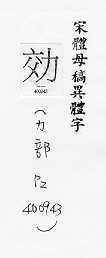 宋體母稿異體字
効
400943
(力部 P2
400943)